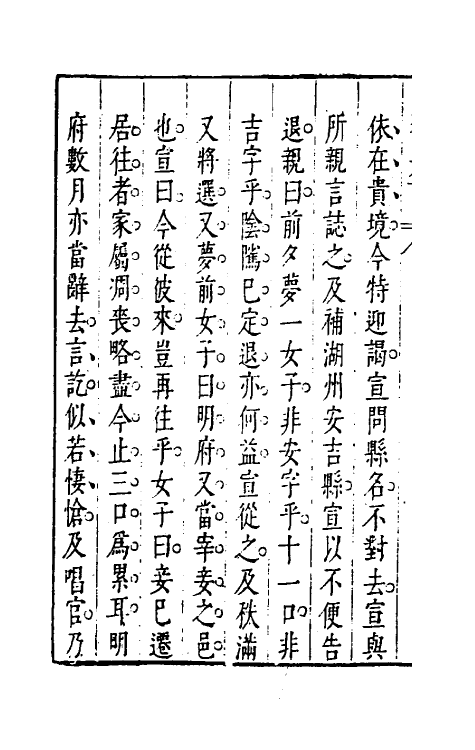 依在貴境。今特迎謁。宣問縣名。不對去。宣與
所親言誌之。及補湖州安吉縣。宣以不便告
退。親曰。前夕夢一女子。非安字乎。十一口。非
吉字乎。陰隲已定。退亦何益。宣從之。及秩滿
又將選。又夢前女子曰。明府又當宰妾之邑
也。宣曰。今從彼來。豈再往乎。女子曰。妾已遷
居。往者家屬凋喪略盡。今止三口爲累耳。明
府數月亦當辭去。言訖。似若悽愴。及唱官。乃